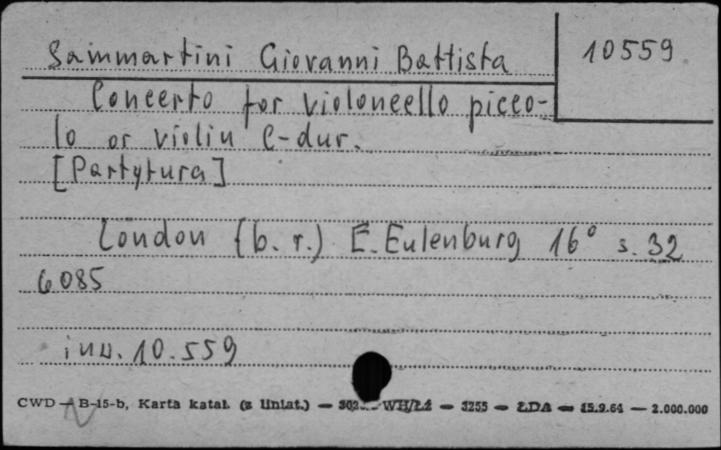 Sammartini Giovanni Battista
10559
Concerto for violoncello picco-
lo or violin C-dur.
[Partytura]
London (b. r.) E. Eulenburg 16° s. 32
6085
inw. 10.559
CWD — B-15-b, Karta katal. (z liniat.) — WH/Łż — 3255 — ŁDA — 15.9.64 — 2.000.000